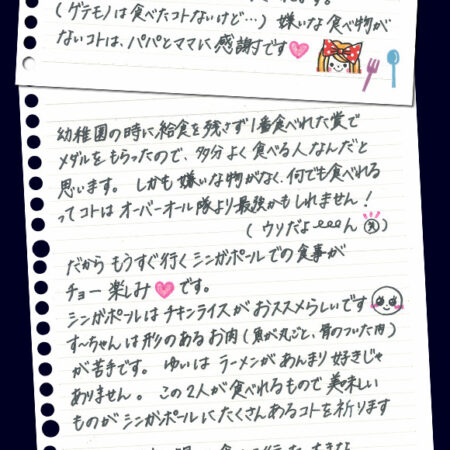 (ゲテモノは食べたコトないけど…) 嫌いな食べ物が
ないコトは、パパとママに感謝です
幼稚園の時に給食を残さず1番食べれた賞で
メダルをもらったので、多分よく食べる人なんだと
思います。しかも嫌いな物がなく、何でも食べれる
ってコトはオーバーオール隊より最強かもしれません!
(ウソだよ〜ん 笑)
だから もうすぐ行くシンガポールでの食事が
チョー楽しみ♥です。
シンガポールはチキンライスがおススメらしいです
す〜ちゃんは形のあるお肉(魚が丸ごと、骨のついた肉)
が苦手です。ゆいはラーメンがあんまり好きじゃ
ありません。この2人が食べれるもので美味しい
ものがシンガポールにたくさんあるコトを祈ります